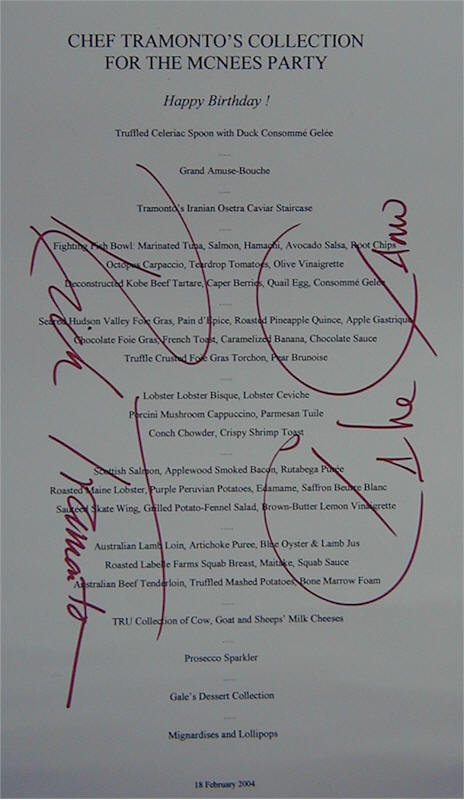 CHEF TRAMONTO'S COLLECTION
FOR THE MCNEES PARTY
Happy Birthday !
Truffled Celeriac Spoon with Duck Consommé Gelée
Grand Amuse-Bouche
Tramonto's Iranian Osetra Caviar Staircase
Fighting Fish Bowl: Marinated Tuna, Salmon, Hamachi, Avocado Salsa, Root Chips
Octopus Carpaccio, Teardrop Tomatoes, Olive Vinaigrette
Deconstructed Kobe Beef Tartare, Caper Berries, Quail Egg, Consommé Gelée
Seared Hudson Valley Foie Gras, Pain d'Epice, Roasted Pineapple Quince, Apple Gastrique
Chocolate Foie Gras, French Toast, Caramelized Banana, Chocolate Sauce
Truffle Crusted Foie Gras Torchon, Pear Brunoise
Lobster Lobster Bisque, Lobster Ceviche
Porcini Mushroom Cappuccino, Parmesan Tuile
Conch Chowder, Crispy Shrimp Toast
Scottish Salmon, Applewood Smoked Bacon, Rutabega Purée
Roasted Maine Lobster, Purple Peruvian Potatoes, Edamame, Saffron Beurre Blanc
Sautéed Skate Wing, Grilled Potato-Fennel Salad, Brown-Butter Lemon Vinaigrette
Australian Lamb Loin, Artichoke Puree, Blue Oyster & Lamb Jus
Roasted Labelle Farms Squab Breast, Maitake, Squab Sauce
Australian Beef Tenderloin, Truffled Mashed Potatoes, Bone Marrow Foam
TRU Collection of Cow, Goat and Sheeps' Milk Cheeses
Prosecco Sparkler
Gale's Dessert Collection
Mignardises and Lollipops
18 February 2004
Tramonto